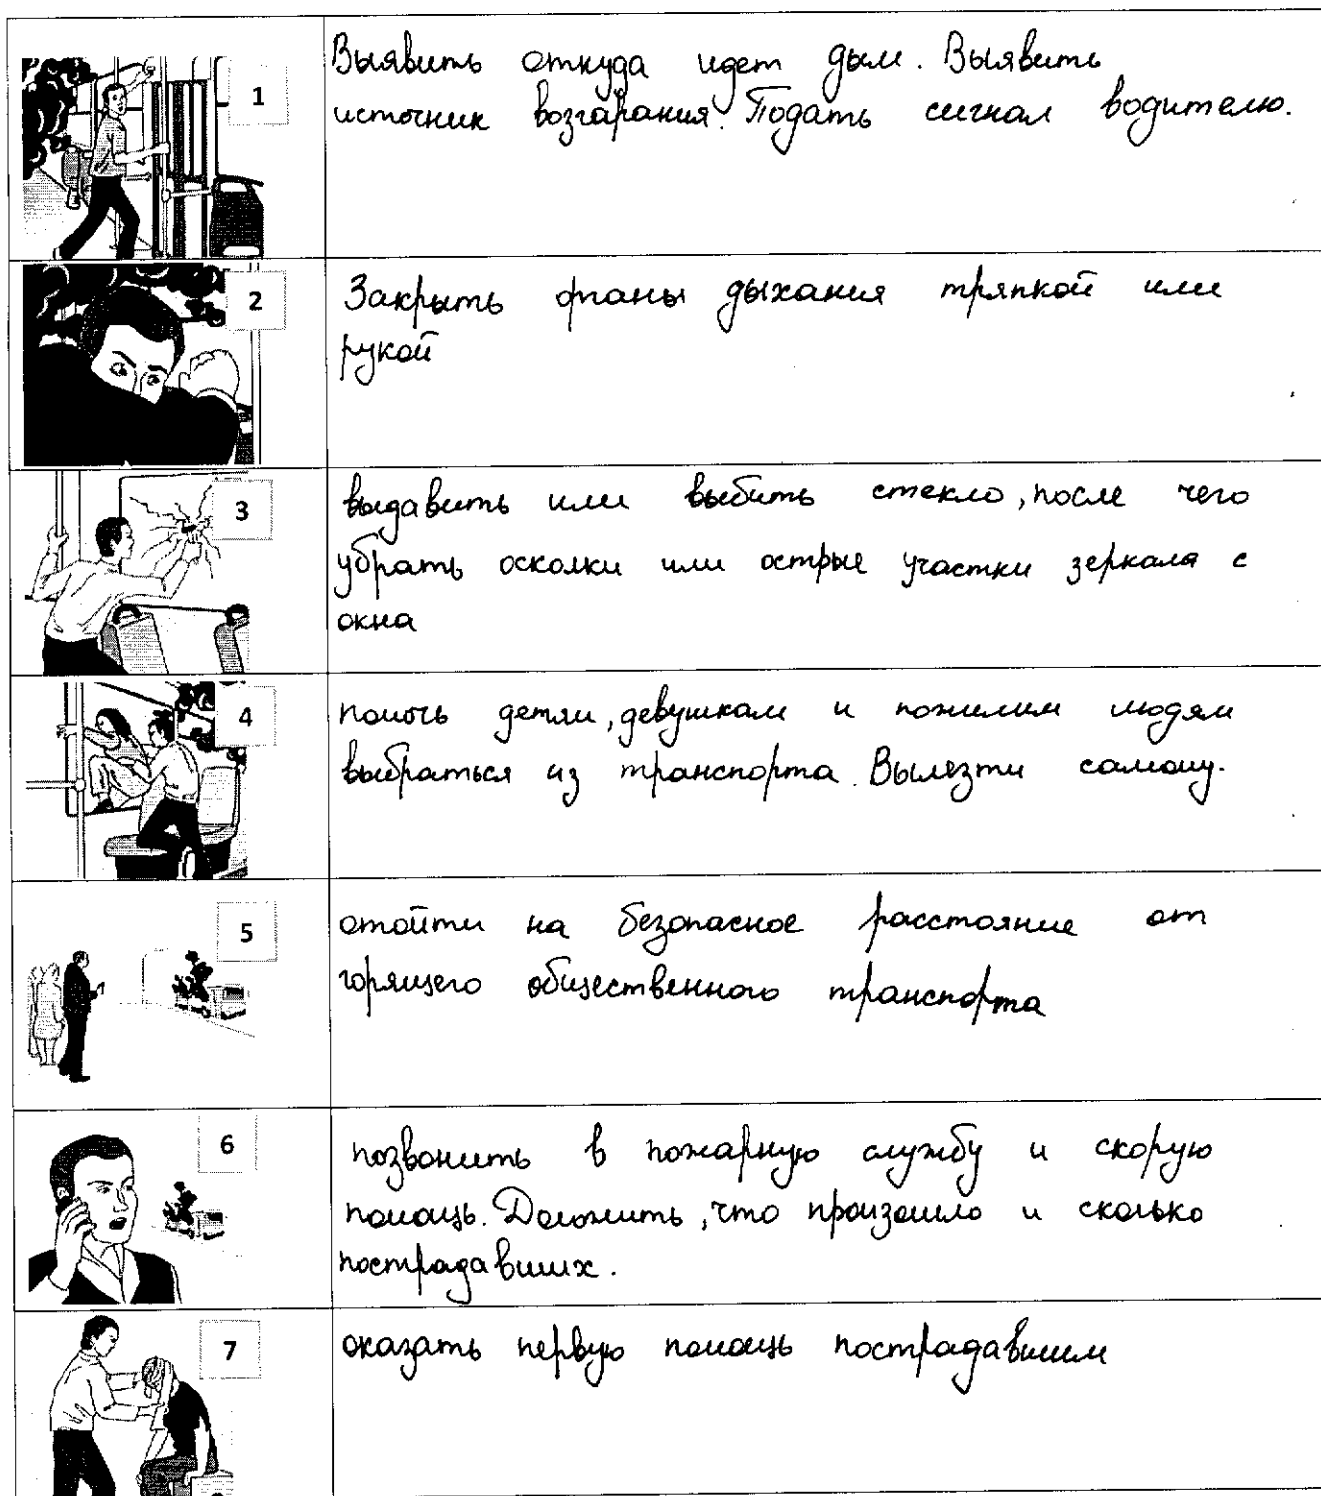 1
Выявить откуда идет дым. Выявить
источник возгарания. Подать сигнал водителю.
2
Закрыть органы дыхания тряпкой или
рукой
3
выдавить или выбить стекло, после чего
убрать осколки или острые участки зеркала с
окна
4
помочь детям, девушкам и пожилим людям
выбраться из транспорта. Вылезти самому.
5
отойти на безопасное расстояние от
горящего общественного транспорта
6
позвонить в пожарную службу и скорую
помощь. Доложить, что произошло и сколько
пострадавших.
7
оказать первую помощь пострадавшим